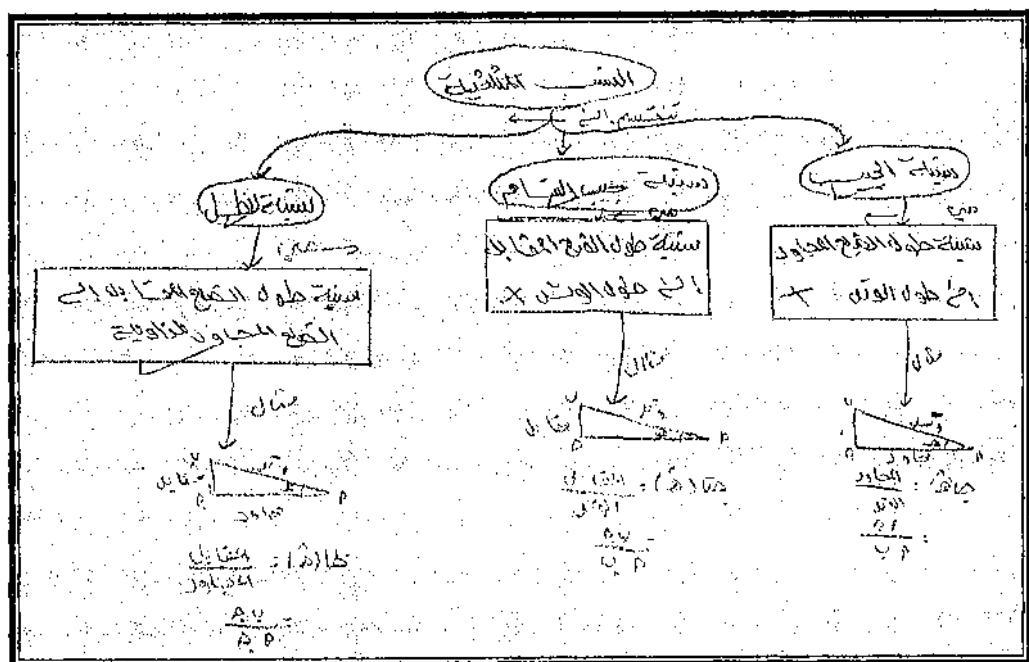 النسب المثلثية
تنقسم إلى
نسبة الجيب
هي
نسبة طول الضلع المجاور
إلى طول الوتر ×
مثال
وتر
هـ
مجاور
جاهـ = المجاور
الوتر
نسبة جيب التمام
هي
نسبة طول الضلع المقابل
إلى طول الوتر ×
مثال
مقابل
وتر
جتا(هـ) = المقابل
الوتر
نسبة الظل
هي
نسبة طول الضلع المقابل إلى
الضلع المجاور للزاوية
مثال
مقابل
وتر
مجاور
ظا(هـ) = المقابل
المجاور